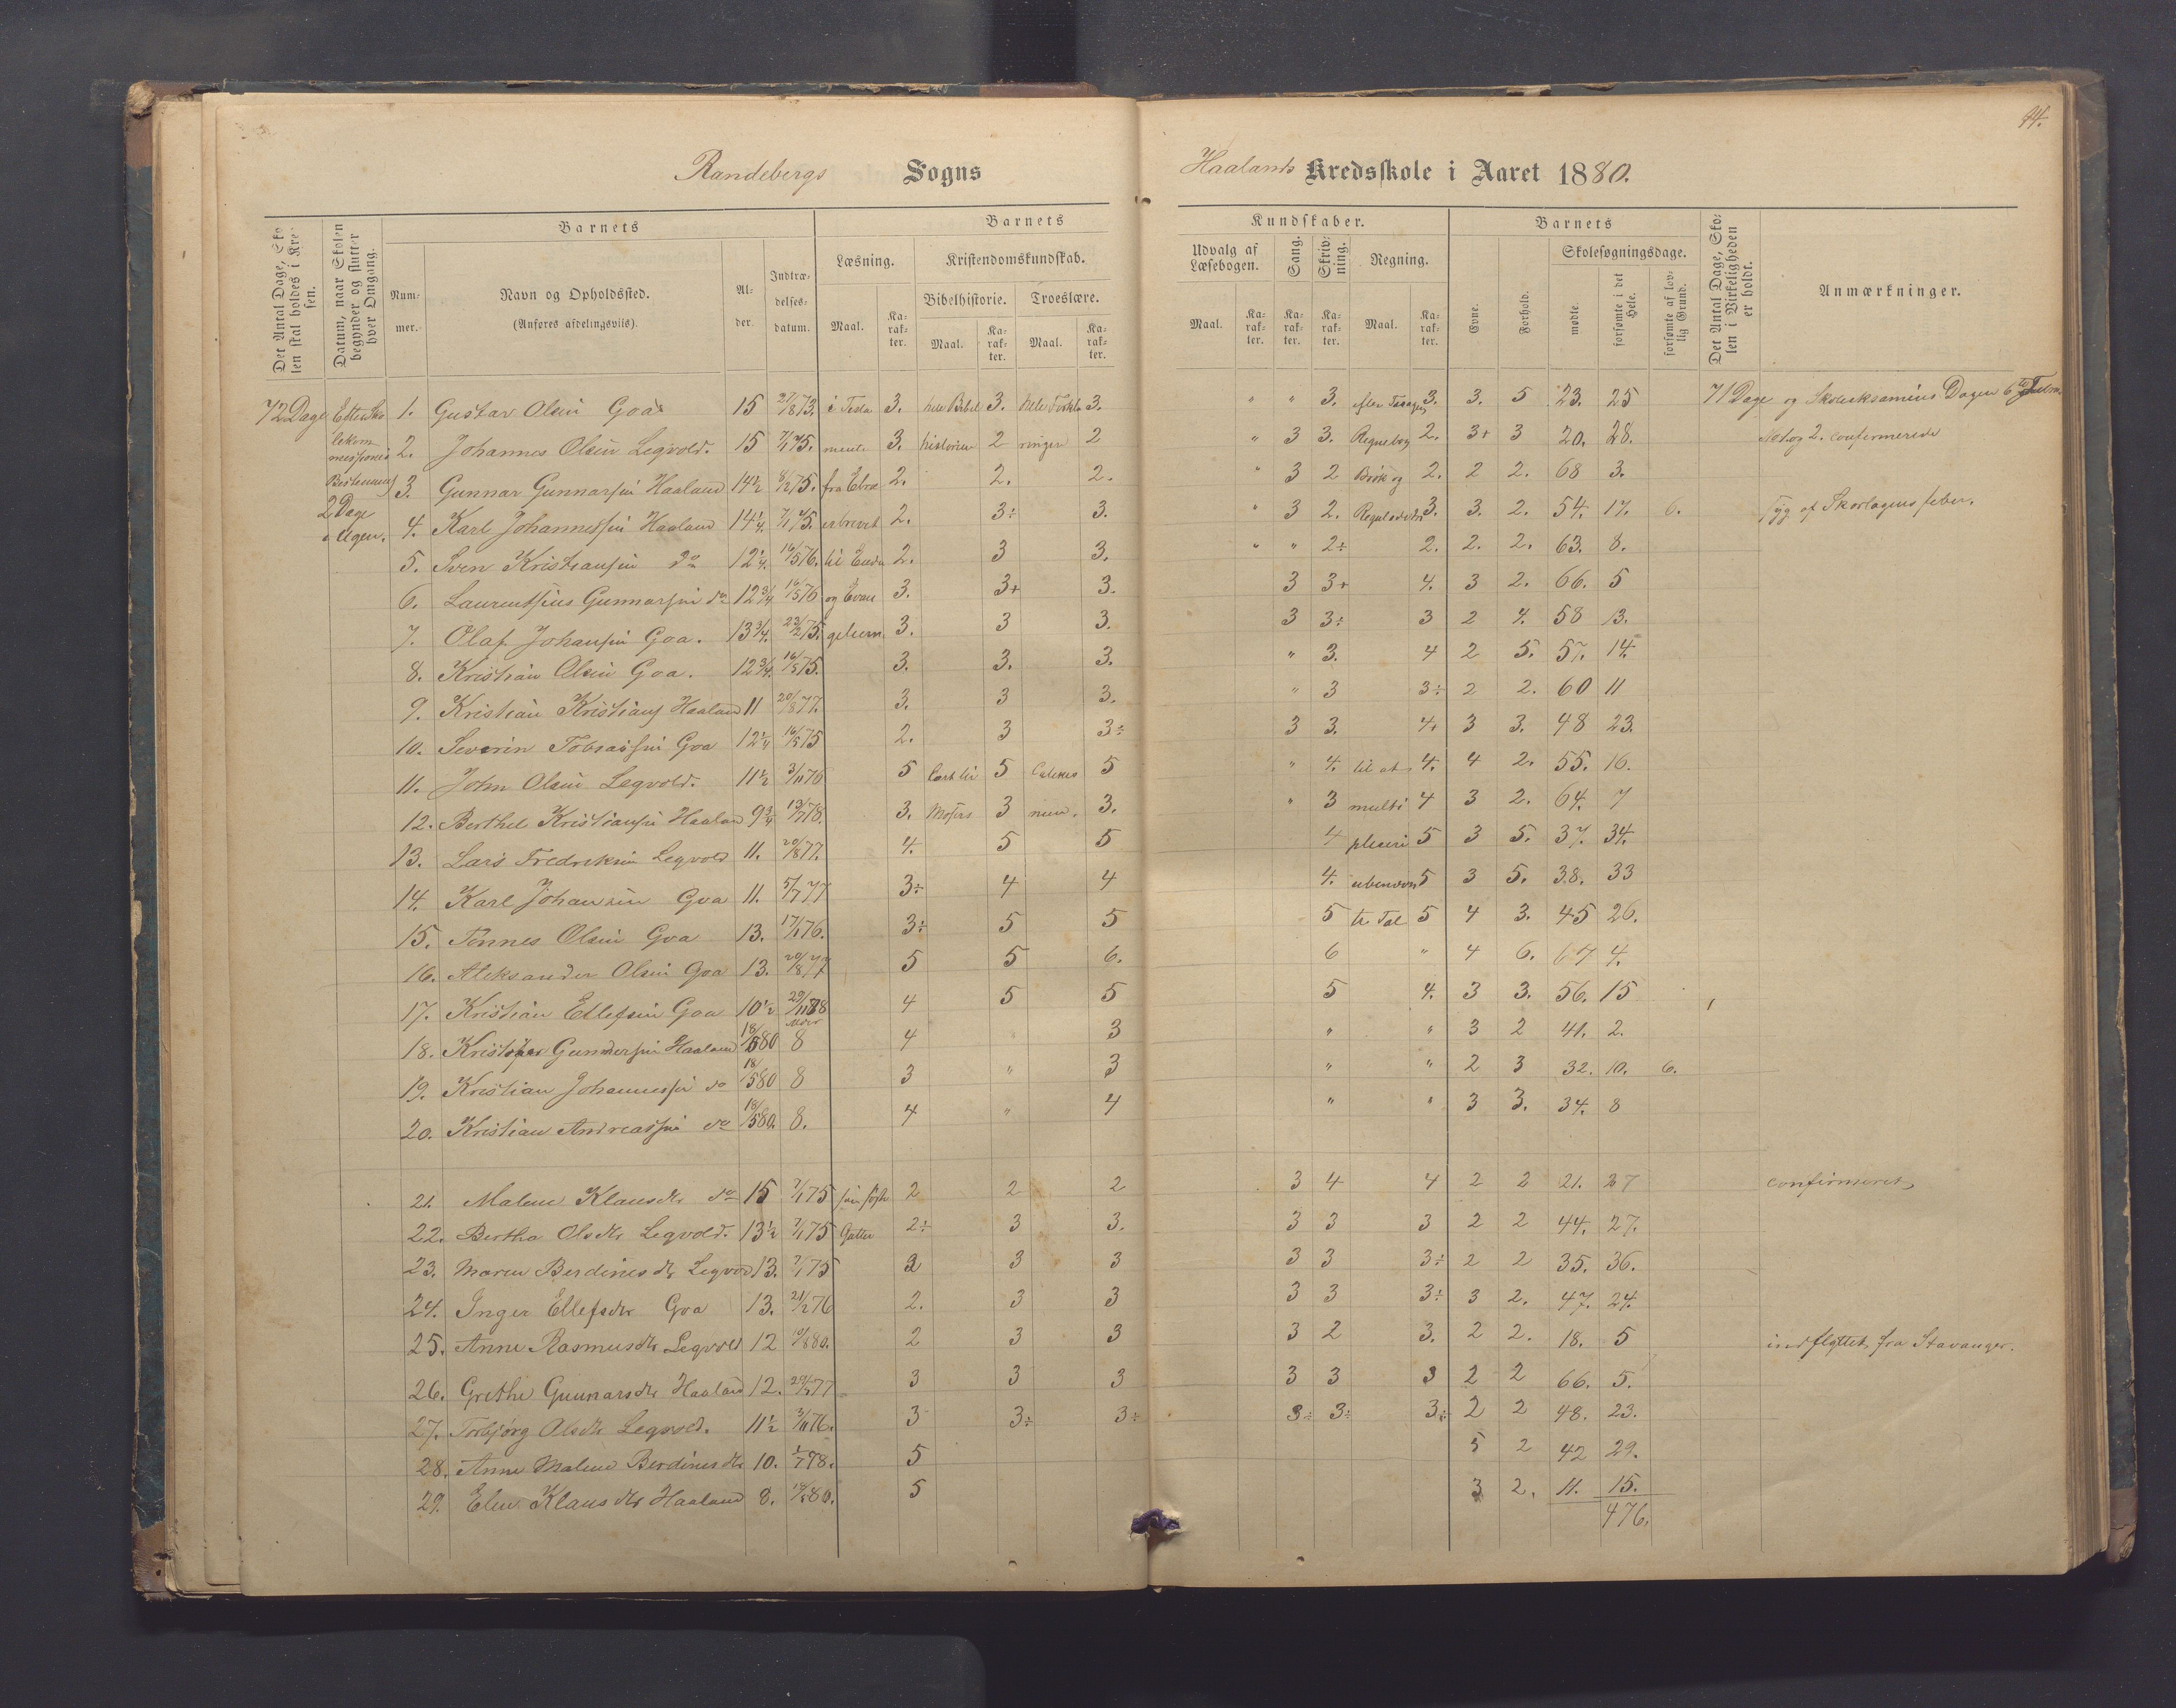 44.
Randebergs Sogns
Haalands Kredsskole i Aaret 1880.
Det Antal Dage, Skolen skal holdes i Kredsen.
Datum, naar Skolen begynder og slutter hver Omgang.
Barnets
Nummer.
Navn og Opholdssted.
(Anføres afdelingsvils).
Alder.
Indtrædelses-datum.
Barnets
Læsning.
Kristendomskundskab.
Bibelhistorie. Troeslære.
Maal. Karakter. Maal. Karakter. Maal. Karakter.
Kundskaber.
Udvalg af Læsebogen.
Sang.
Skrivning.
Regning.
Maal. Karakter. Karakter. Karakter. Maal. Karakter.
Barnets
Evne.
Forhold.
Skolesøgningsdage.
mødte
forsømte i det Hele.
forsømte af lovlig Grund.
Det Antal Dage, Skolen i Virkeligheden er holdt.
Anmærkninger.
72 Dage 1. Gustav Olsen Goa 15 27/8 73. i Testa 3. hele Bibel 3. hele Forkla 3. " " 3. 3. 3. 5 23. 25 71 Dage og Skoleeksamens Dagen 6te
2. Johannes Olsen Legvold. 15 7/1 75. ment. 3. historien 2 ringen 2 " 3 3. Regnebog 2. 3+ 3 20. 28. No 1 og 2. confirmerede
3. Gunnar Gunnarsen Haaland 14½ 8/2 75. fra Ebræ 2. 2. 2. " 3 2 Brøk og 2. 2 2. 68 3.
2 Dage 4. Karl Johannessen Haaland 14¼ 7/1 75. erbrevet 2. 3÷ 3. " 3 2. 3. 3. 2. 54. 17. 6. syg af Skarlagensfeber.
Ugen. 5. Sven Kristiansen do 12¼. 16/5 76. til Enden 2. 3 3. " " 2÷ 2. 2. 2. 63. 8.
6. Laurentsius Gunnarsen do 12¾ 16/5 76 og Evan 3. 3+ 3. 3 3+ 4. 3 2. 66. 5
7. Olaf Johansen Goa. 13¾. 23/2 75. gelierne 3. 3 3. 3 3÷ 3 2 4. 58 13.
8. Kristian Olsen Goa. 12¾. 16/5 75. 3. 3. 3. " 3. 4 2 5. 57. 14.
9. Kristian Kristians Haaland 11 20/8 77. 3. 3 3. " 3 3÷ 2 2. 60 11
10. Severin Tobiassen Goa 12¼ 16/5 75 2. 3 3÷ 3 3. 4. 3 3. 48 23.
11. John Olsen Legvold. 11½ 3/11 76 5 Cort til 5 5 " 4. til at 4. 4 2. 55. 16.
12. Berthel Kristiansen Haaland 9¾ 13/7 78. 3. Moses 3 3. " 3 multi 4 3 2. 64. 7
13. Lars Fredriksen Legvold 11. 20/8 77. 4. 5 5 4 5 3 5. 37. 34.
14. Karl Johansen Goa 11. 5/7 77 3÷ 4 4 4. 5 3 5. 38. 33
15. Tønnes Olsen Goa 13. 17/1 76. 3÷ 5 5 5 te Tal 5 4 3. 45 26.
16. Aleksander Olsen Goa 13. 20/8 77 5 5 6. 6 " 4 6. 67 4.
17. Kristian Ellefsen Goa 10½ 29/11 78 4 5 5 5 4. 3 3. 56. 15
18. Kristofer Gundersen Haaland 18/5 80 8 4 3 " " 3 2 41. 2.
19. Kristian Johannessen do 18/5 80 8 3 " 3 " " 2 3 32. 10. 6.
20. Kristian Andreassen do 18/5 80. 8. 4 " 4 " " 3 3. 34. 8
21. Malene Klausdtr do 15 7/1 75 2 2 2 3 4 4 2 2 21. 27 confirmeret
22. Bertha Olsdtr Legvold. 13½ 7/1 75 2÷ 3 3. 3 3 3 2 2 44. 27.
23. Maren Berdinesdtr Legvold 13. 7/1 75 2 3 3 3 3 3÷ 2 2 35. 36.
24. Inger Ellefsdtr Goa 13. 21/2 76 2. 3 3 3 3 3÷ 3 2. 47. 24.
25. Anne Rasmusdtr Legvold 12 2 3 3 3 2 3. 2 2. 18. 5 indflyttet fra Stavanger.
26. Grethe Gunnarsdtr Haaland 12. 3 3 3 3 3 3 2 2 66. 5.
27. Torbjørg Olsdtr Legvold. 11½ 3/11 76. 3 3÷ 3÷ 3÷ 3÷ 3÷ 2 2 48. 23.
28. Anne Malene Berdinesdtr 10. 5 5 2 42 29.
29. Elen Klausdtr Haaland 8. 5 3 2. 11. 15.
476.